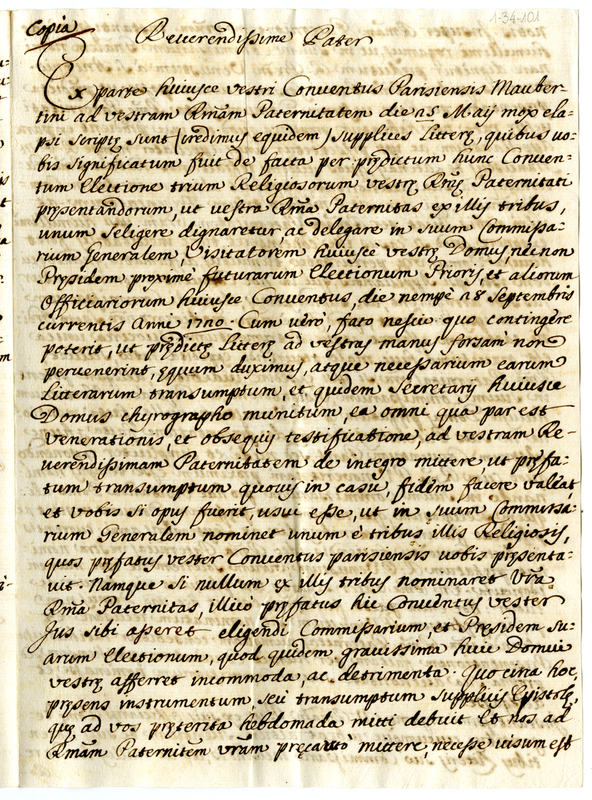 1-34-101
Copia
Reverendissime Pater
Ex parte huiusce vestri Conventus Parisiensis Mauber-
tini ad vestram Rmãm Paternitatem die 25 Maij mox ela-
psi scriptę sunt (credimus equidem) supplices Litterę, quibus vo-
bis significatum fuit de facta per prędictum hunc Conven-
tum Electione trium Religiosorum vestrę Rmę Paternitati
pręsentandorum, ut vestra Rmã Paternitas ex illis tribus,
unum seligere dignaretur, ac delegare in suum Commissa-
rium Generalem, Visitatorem huiusce vestrę Domus, nec non
Pręsidem proximè futurarum Electionum Prioris et aliorum
Officiariorum huiusce Conventus, die nempè 28 Septembris
currentis Anni 1720. Cum verò, fato nescio quo contingere
poterit, ut prędictę Litterę ad vestras manus forsam non
pervenerint, ęquum duximus, atque necessarium earum
Litterarum transumptum, et quidem Secretarij huiusce
Domus chyrographo munitum, ea omni qua par est
venerationis, et obsequij testificatione, ad vestram Re-
verendissimam Paternitatem de integro mittere, ut pręfa-
tum transumptum quovis in casu, fidem facere valeat,
et vobis si opus fuerit, usui esse, ut in suum Commissa-
rium Generalem nominet unum è tribus illis Religiosis,
quos pręfatus vester Conventus parisiensis vobis pręsenta-
vit. Namque si nullum ex illis tribus nominaret Vrã
Rmã Paternitas, illicò pręfatus hic Conventus vester
Jus sibi asseret eligendi Commissarium, et Pręsidem su-
arum Electionum, quod quidem gravissima huic Domui
vestrę afferret incommoda, ac detrimenta. Quo circa hoc
pręsens instrumentum, seù transumptum supplicis Epistolę,
quę ad vos pręterita hebdomada mitti debuit et nos ad
Rmãm Paternitẽm vrãm mittere, necesse visum est